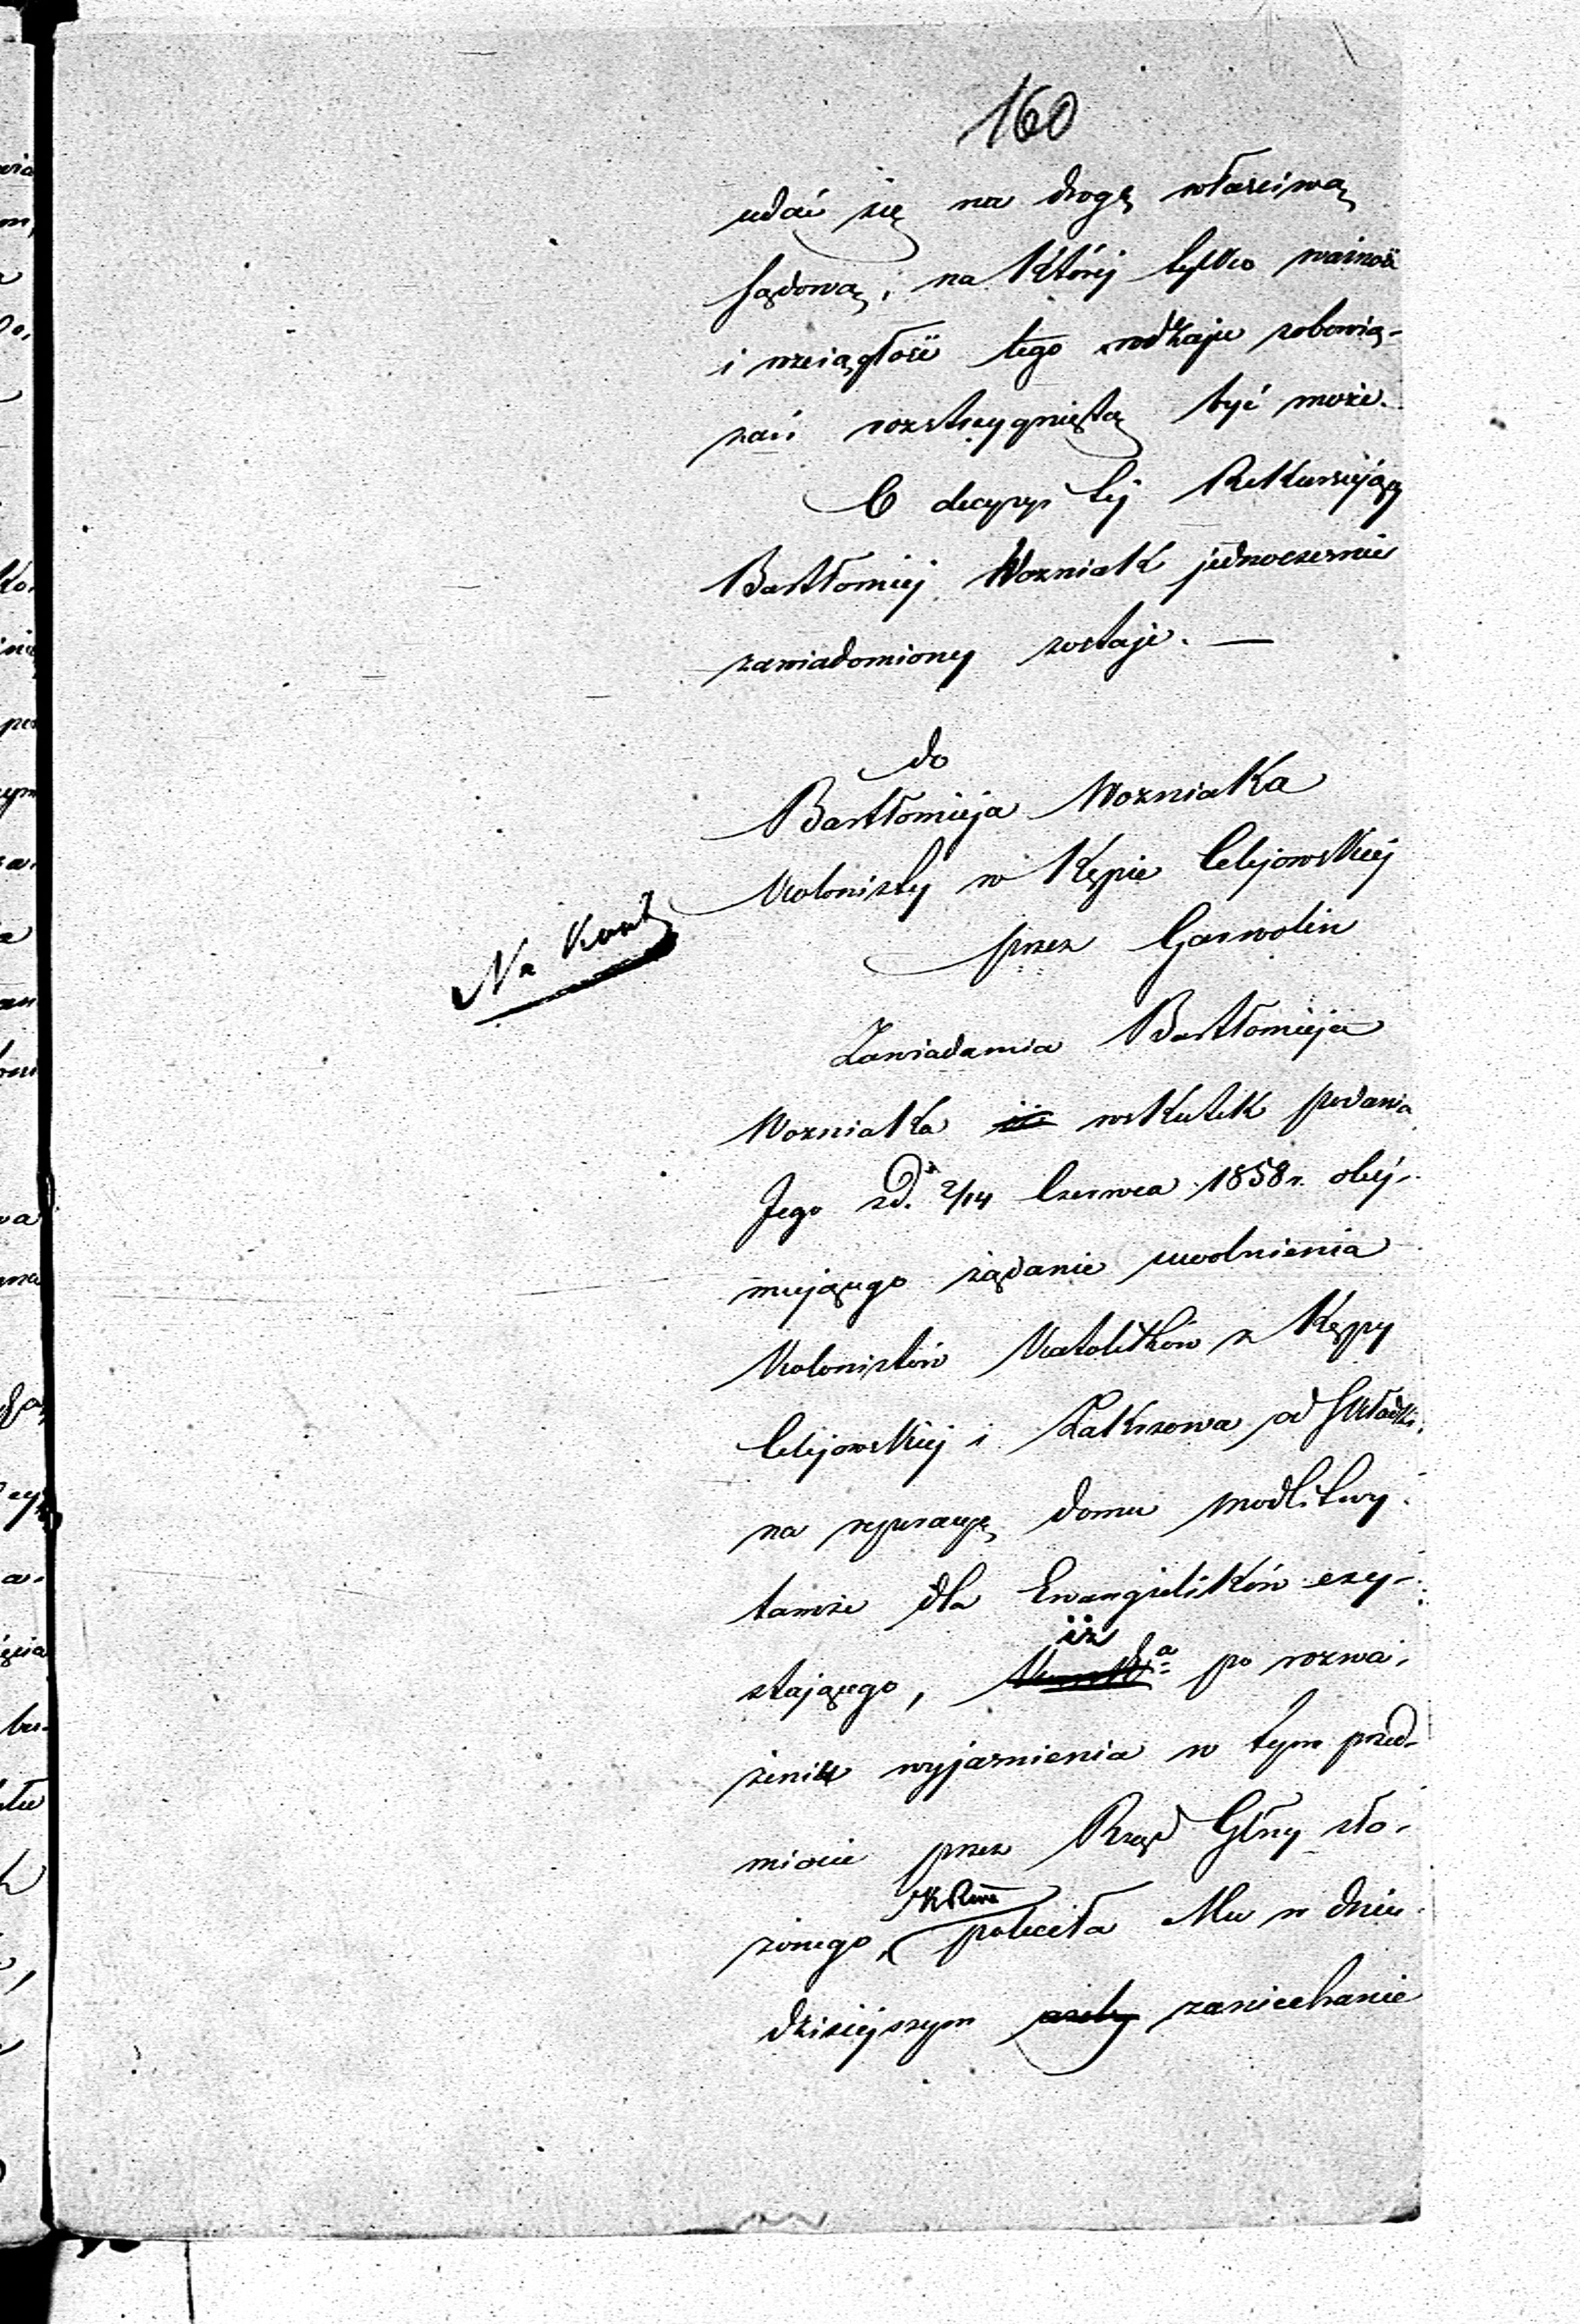 160
udać się na drogę właściwą
sądową, na której tylko ważność
i rozciągłość tego rodzaju zobowią-
zań rozstrzygniętą być może.
O decyzyi tej Rekurujący
Bartłomiej Wozniak jednocześnie
zawiadomiony zostaje. —
do
Bartłomieja Wozniaka
Kolonisty w Kępie Celejowskiej
przez Garwolin
Na
Zawiadamia Bartłomieja
Wozniaka wskutek podania
Jego z d. 2/14 Czerwca 1858 r. obej-
mującego żądanie uwolnienia
Kolonistów Katolików z Kępy
Celejowskiej i Zakrzowa od Składki
na reperacyę domu modlitwy
tamże dla Ewangielików exy-
stającego, iż po rozwa-
żeniu wyjasnienia w tym przed-
miocie przez Rząd Głny zło-
żonego, poleciła Mu w dniu
dzisiejszym zaniechanie